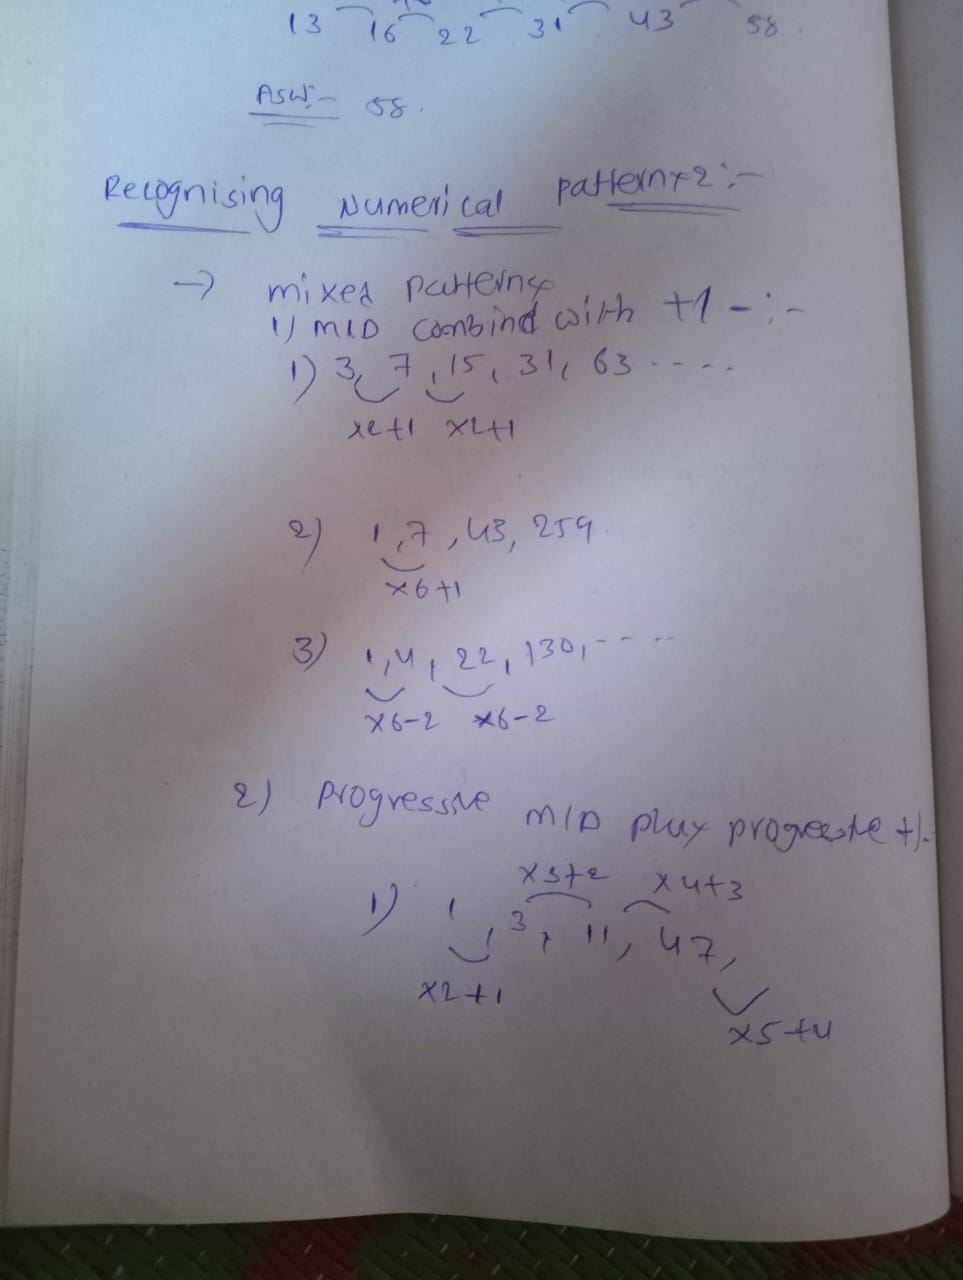 13 16 22 31 43 58.
ASW:- 58.
Recognising Numerical Pattern-2:-
→ mixed patterns
1) M/D combind with +/-:-
1) 3, 7, 15, 31, 63 -----
x2+1 x2+1
2) 1, 7, 43, 259.
x6+1
3) 1, 4, 22, 130, -----
x6-2 x6-2
2) Progressive M/D plus +/-
x3+2 x4+3
1) 1, 3, 11, 47,
x2+1
x5+4